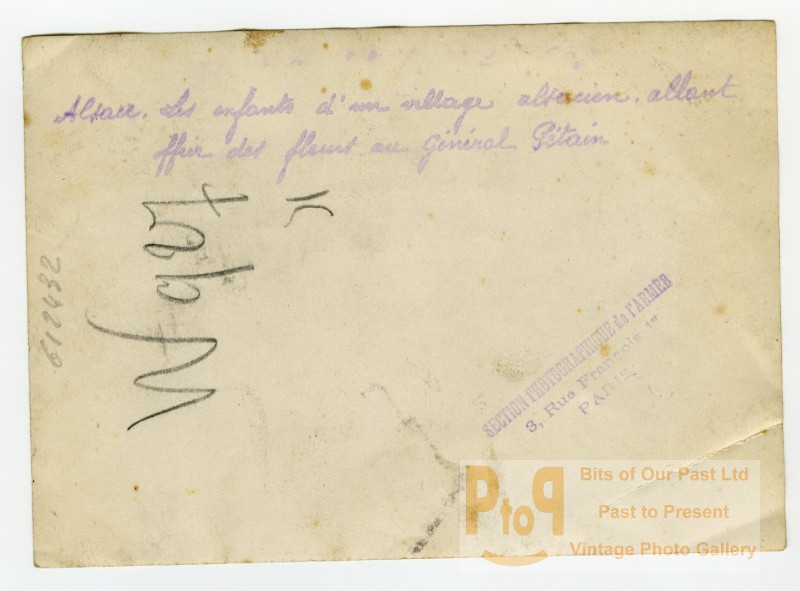 Alsace. Les enfants d'un village alsacien. allant
ffrir des fleurs au Général Pétain
612432
SECTION PHOTOGRAPHIQUE de l'ARMÉE
3, Rue François 1er
PARIS
PtoP
Bits of Our Past Ltd
Past to Present
Vintage Photo Gallery